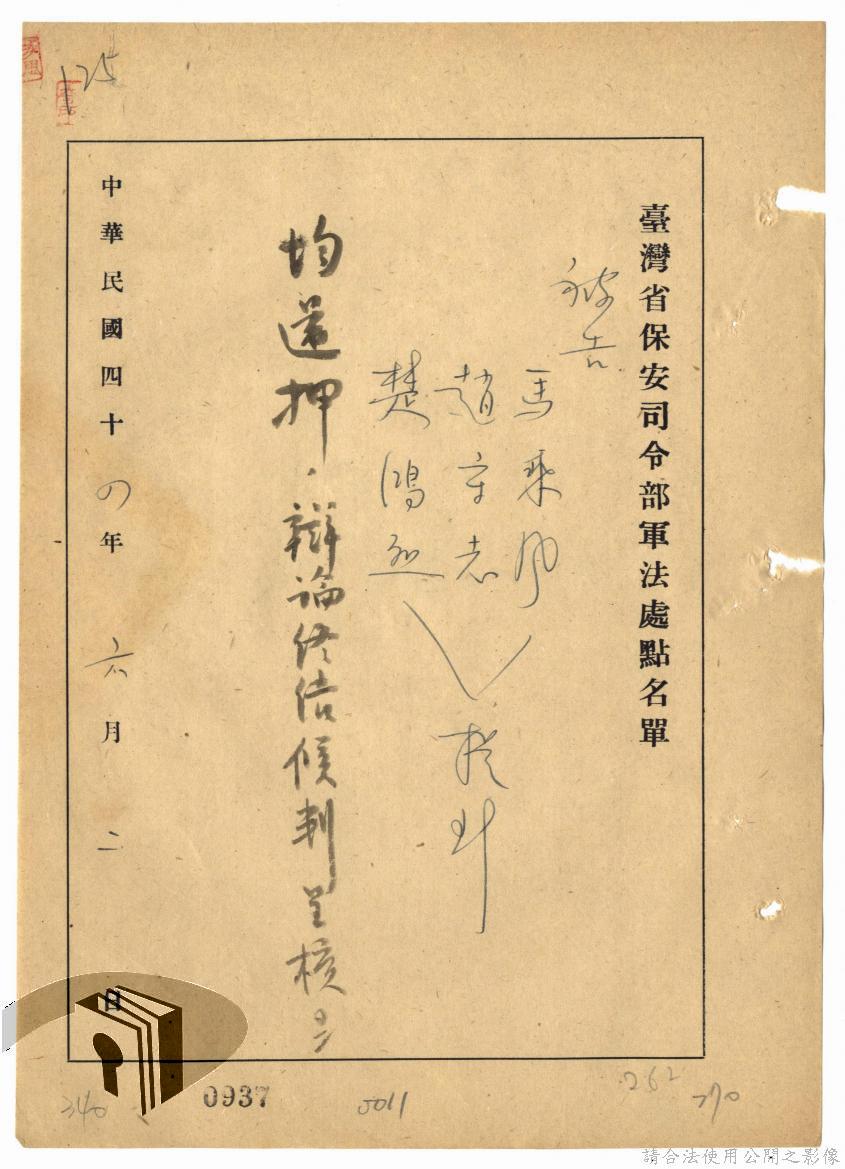 臺灣省保安司令部軍法處點名單
被告
馬乘風
趙守志
楚鴻烈
均還押，辯論終結候判呈核
中華民國四十四年六月二日
125
340
0937
0011
262
270
請合法使用公開之影像